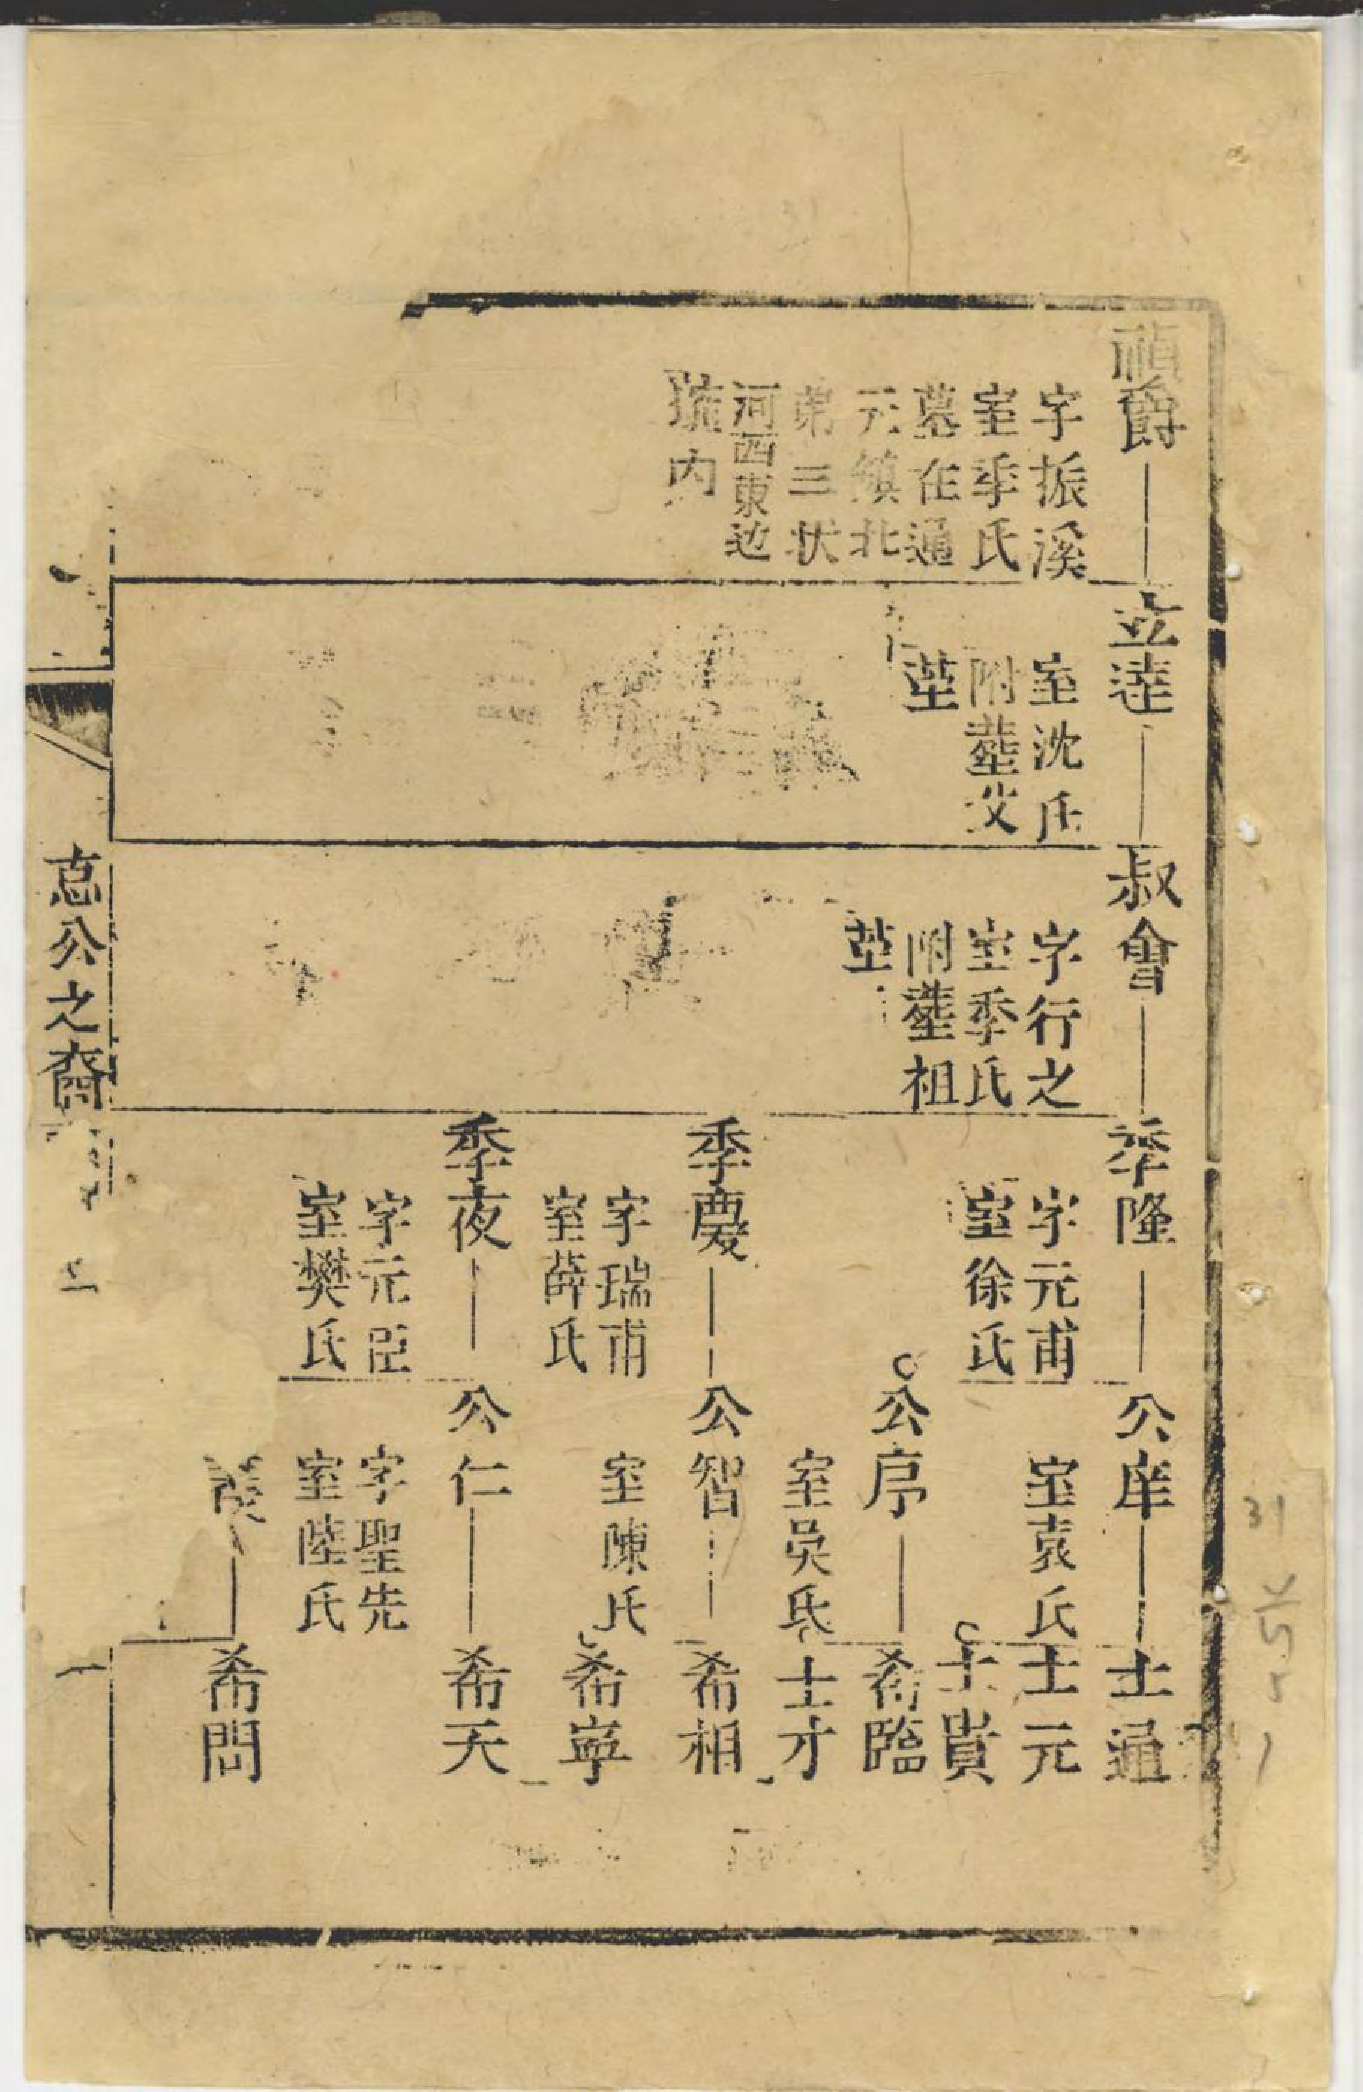 禎爵
字振溪
室季氏
墓在通
元鎮北
第三狀
河西東边
琉内
立逵
室沈氏
附塟父
塋
叔會
字行之
室季氏
附塟祖
塋
季隆
字元甫
室徐氏
季慶
字瑞甫
室薛氏
季夜
字元臣
室樊氏
公庠
室袁氏
公序
室吳氏
公智
室陳氏
公仁
字聖先
室陸氏
士通
士元
士貴
希臨
士才
希相
希寧
希天
希問
志公之裔